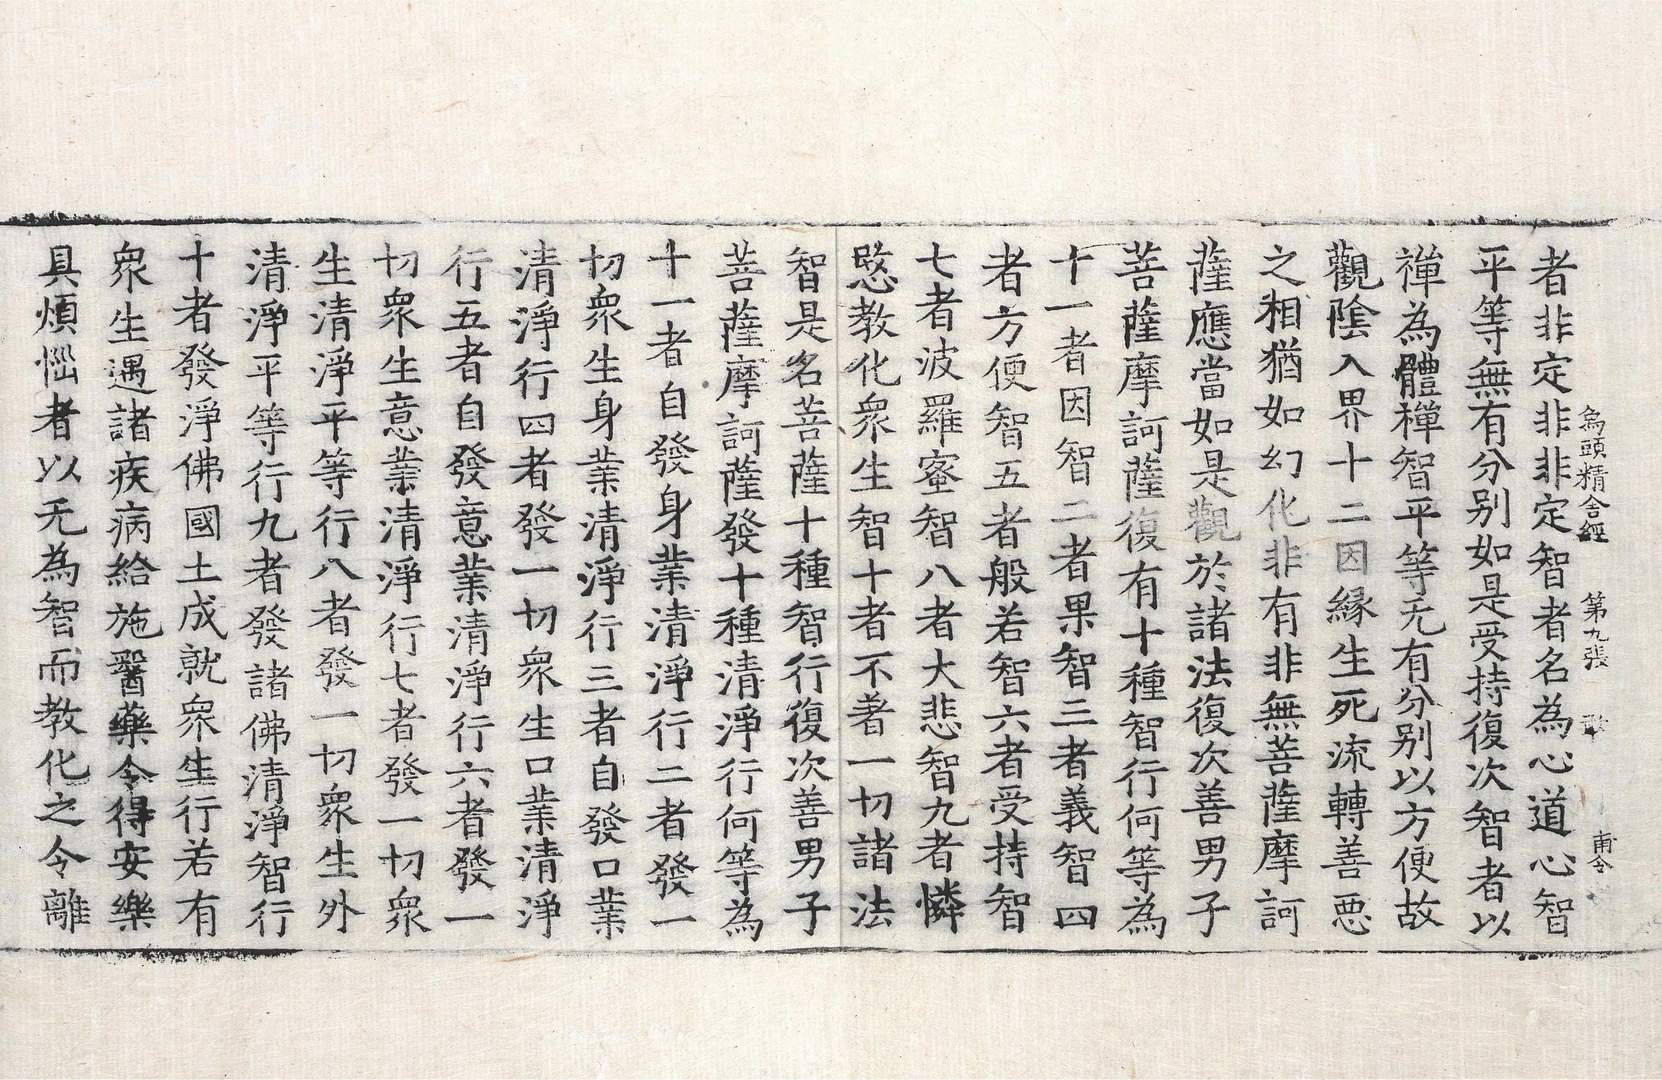 象頭精舍經 第九張 甫令
者非定非非定智者名為心道心智
平等無有分别如是受持復次智者以
禪為體禪智平等无有分别以方便故
觀陰入界十二因緣生死流轉善惡
之相猶如幻化非有非無菩薩摩訶
薩應當如是觀於諸法復次善男子
菩薩摩訶薩復有十種智行何等為
十一者因智二者果智三者義智四
者方便智五者般若智六者受持智
七者波羅蜜智八者大悲智九者憐
愍教化衆生智十者不著一切諸法
智是名菩薩十種智行復次善男子
菩薩摩訶薩發十種清淨行何等為
十一者自發身業清淨行二者發一
切衆生身業清淨行三者自發口業
清淨行四者發一切衆生口業清淨
行五者自發意業清淨行六者發一
切衆生意業清淨行七者發一切衆
生清淨平等行八者發一切衆生外
清淨平等行九者發諸佛清淨智行
十者發淨佛國土成就衆生行若有
衆生遇諸疾病給施醫藥令得安樂
具煩惱者以无為智而教化之令離